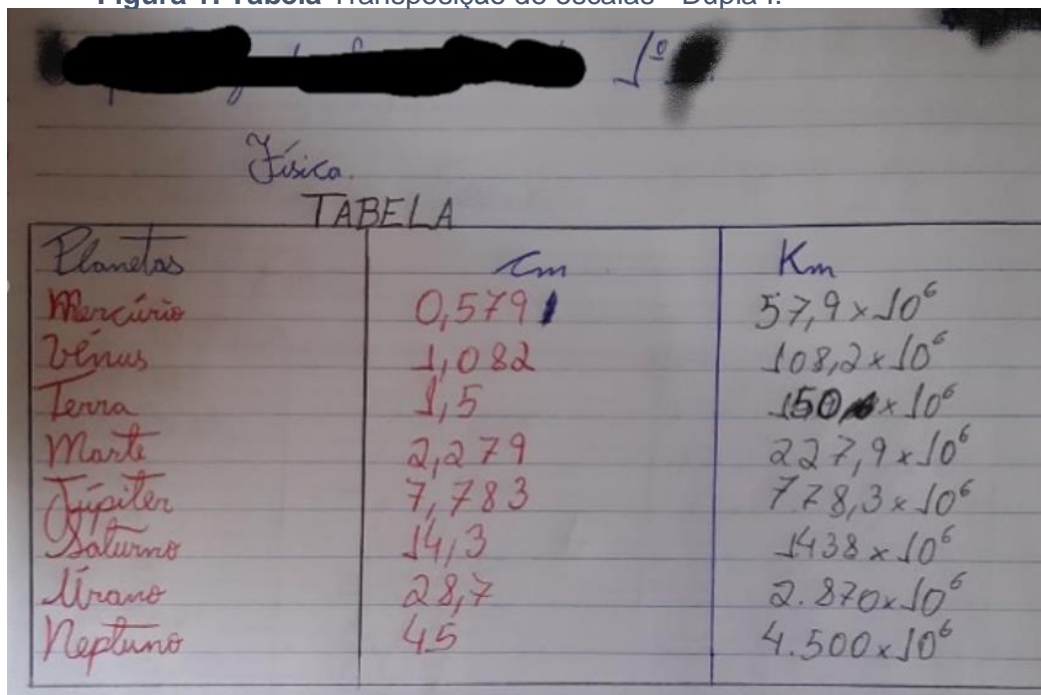 Figura 1. Tabela Transposição de escalas - Dupla I.
1º
Física.
TABELA
Planetas cm Km
Mercúrio 0,579 57,9 x 10⁶
Vênus 1,082 108,2 x 10⁶
Terra 1,5 150 x 10⁶
Marte 2,279 227,9 x 10⁶
Júpiter 7,783 778,3 x 10⁶
Saturno 14,3 1438 x 10⁶
Urano 28,7 2.870 x 10⁶
Neptuno 45 4.500 x 10⁶